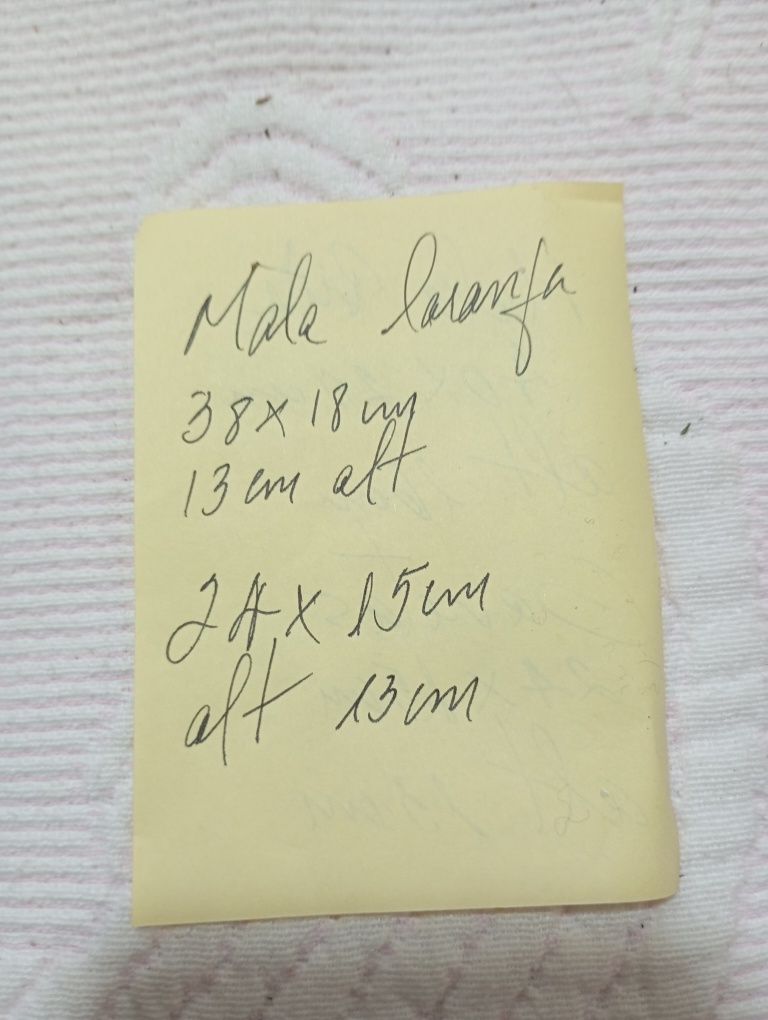 Mala laranja
38x18 cm
13 cm alt
24x15cm
alt 13cm